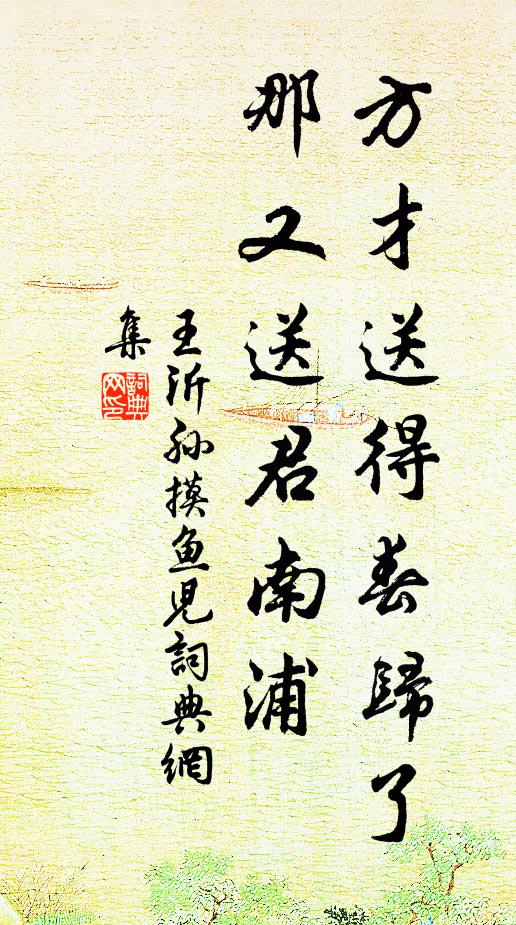 方才送得春歸了
那又送君南浦
王沂孙摸鱼児詞典網
集
詞典網印